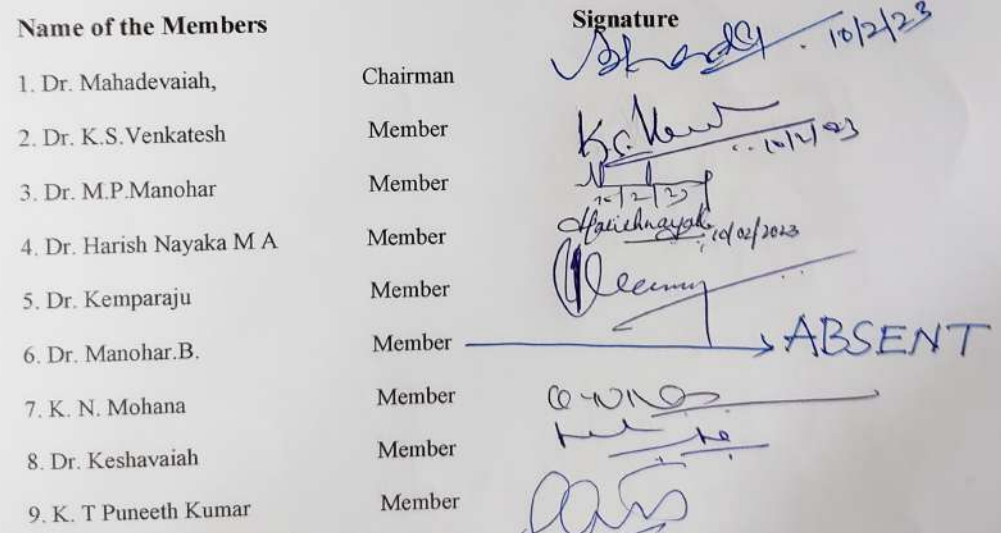 Name of the Members Signature
1. Dr. Mahadevaiah, Chairman 10/2/23
2. Dr. K.S.Venkatesh Member 10/2/23
3. Dr. M.P.Manohar Member 10/2/23
4. Dr. Harish Nayaka M A Member Harishnayak 10/02/2023
5. Dr. Kemparaju Member
6. Dr. Manohar.B. Member ABSENT
7. K. N. Mohana Member
8. Dr. Keshavaiah Member
9. K. T Puneeth Kumar Member